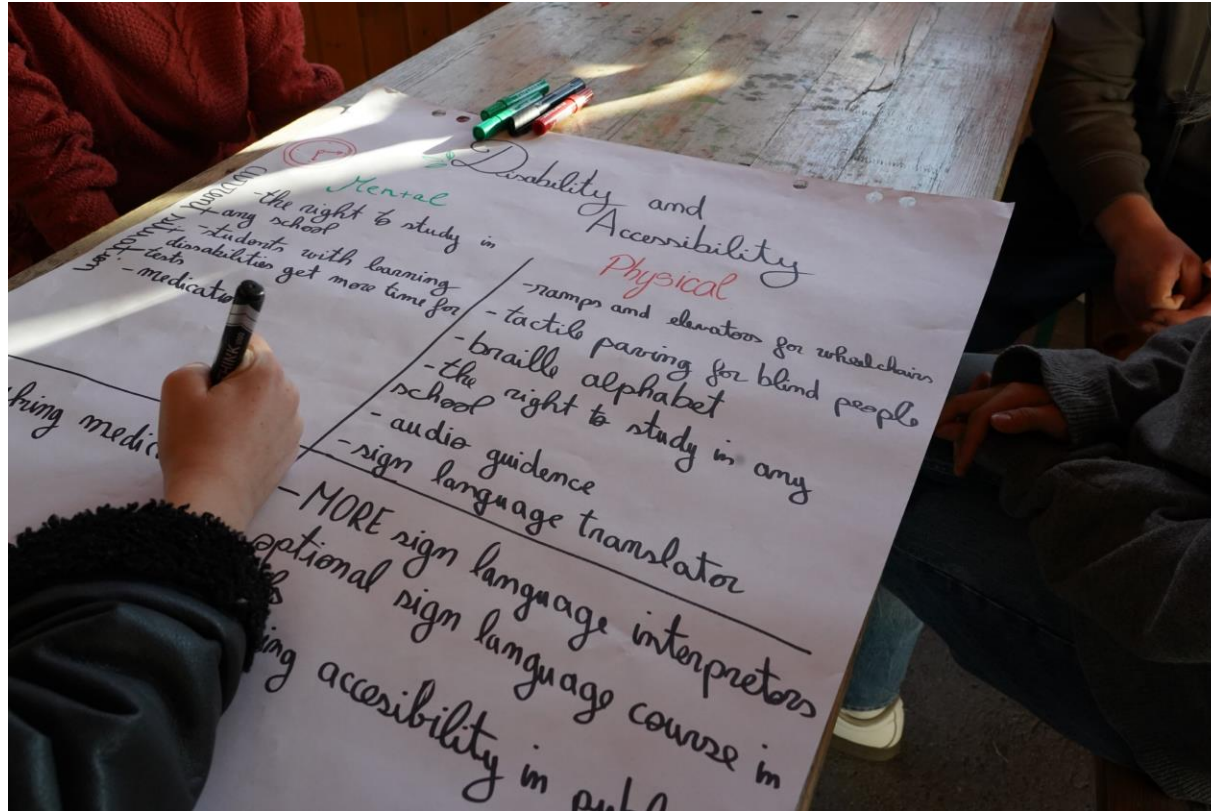 Disability and
Accessibility
Mental
-the right to study in
any school
-students with learning
dissabilities get more time for
tests
-medication
current situation
Physical
-ramps and elevators for wheelchairs
-tactile paving for blind people
-braille alphabet
-the right to study in any
school
-audio guidence
-sign language translator
-MORE sign language interpretors
optional sign language course in
ing accesibility in